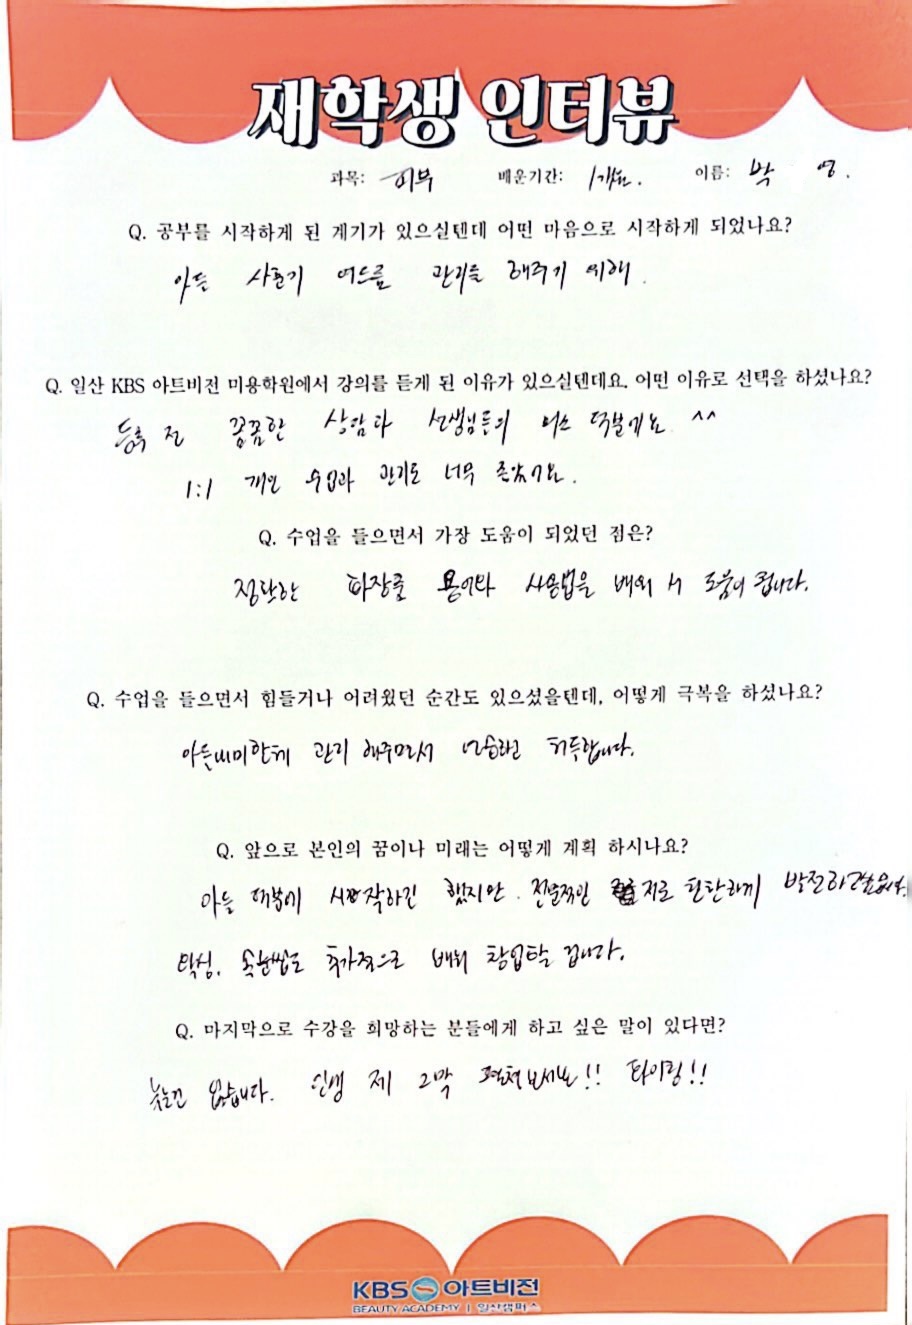 재학생 인터뷰
과목: 피부 배운기간: 1개월. 이름: 박 영.
Q. 공부를 시작하게 된 계기가 있으실텐데 어떤 마음으로 시작하게 되었나요?
아들 사춘기 여드름 관리를 해주기 위해.
Q. 일산 KBS 아트비전 미용학원에서 강의를 듣게 된 이유가 있으실텐데요, 어떤 이유로 선택을 하셨나요?
등록 전 꼼꼼한 상담과 선생님들의 미소 덕분예요 ^^
1:1 개인 수업과 관리도 너무 좋았어요.
Q. 수업을 들으면서 가장 도움이 되었던 점은?
정확한 화장품 용어와 사용법을 배워서 도움이 됩니다.
Q. 수업을 들으면서 힘들거나 어려웠던 순간도 있으셨을텐데, 어떻게 극복을 하셨나요?
아들내미한테 관리 해주면서 연습하고 터득합니다.
Q. 앞으로 본인의 꿈이나 미래는 어떻게 계획 하시나요?
아들 때문에 시작하긴 했지만 전문적인 지로 탄탄하게 발전하고싶습니다.
왁싱, 속눈썹도 추가적으로 배워 창업할 겁니다.
Q. 마지막으로 수강을 희망하는 분들에게 하고 싶은 말이 있다면?
늦는건 없습니다. 인생 제 2막 펼쳐보세요!! 화이팅!!
KBS 아트비전
BEAUTY ACADEMY | 일산캠퍼스